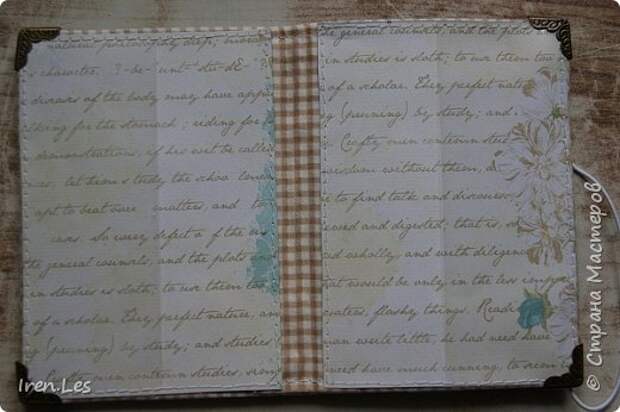 natural philosophy deep; moral
s character.
diseases of the body may have appro
lking for the stomach; riding for
demonstrations, if his wit be called
nces, let him study the schoo lmen
apt to beat over matters, and to
cars. So every defect of the m
the general counsels, and the plots and
in studies is sloth; to use them too
of a scholar. They perfect nature, an
g (pruning) by study; and studies
Crafty men contemn studies, sim
the general counsels, and the plots
in studies is sloth; to use them too
of a scholar. They perfect natur
g (pruning) by study; and
Crafty men contemn stud
wisdom without them, a
e to find talk and discourse;
ewed and digested; that is, so
ad wholly, and with diligence
that would be only in the less impor
waters, flashy things. Readi
man write little, he had need have
need have much cunning, to seem
Iren.Les
© Страна Мастеров